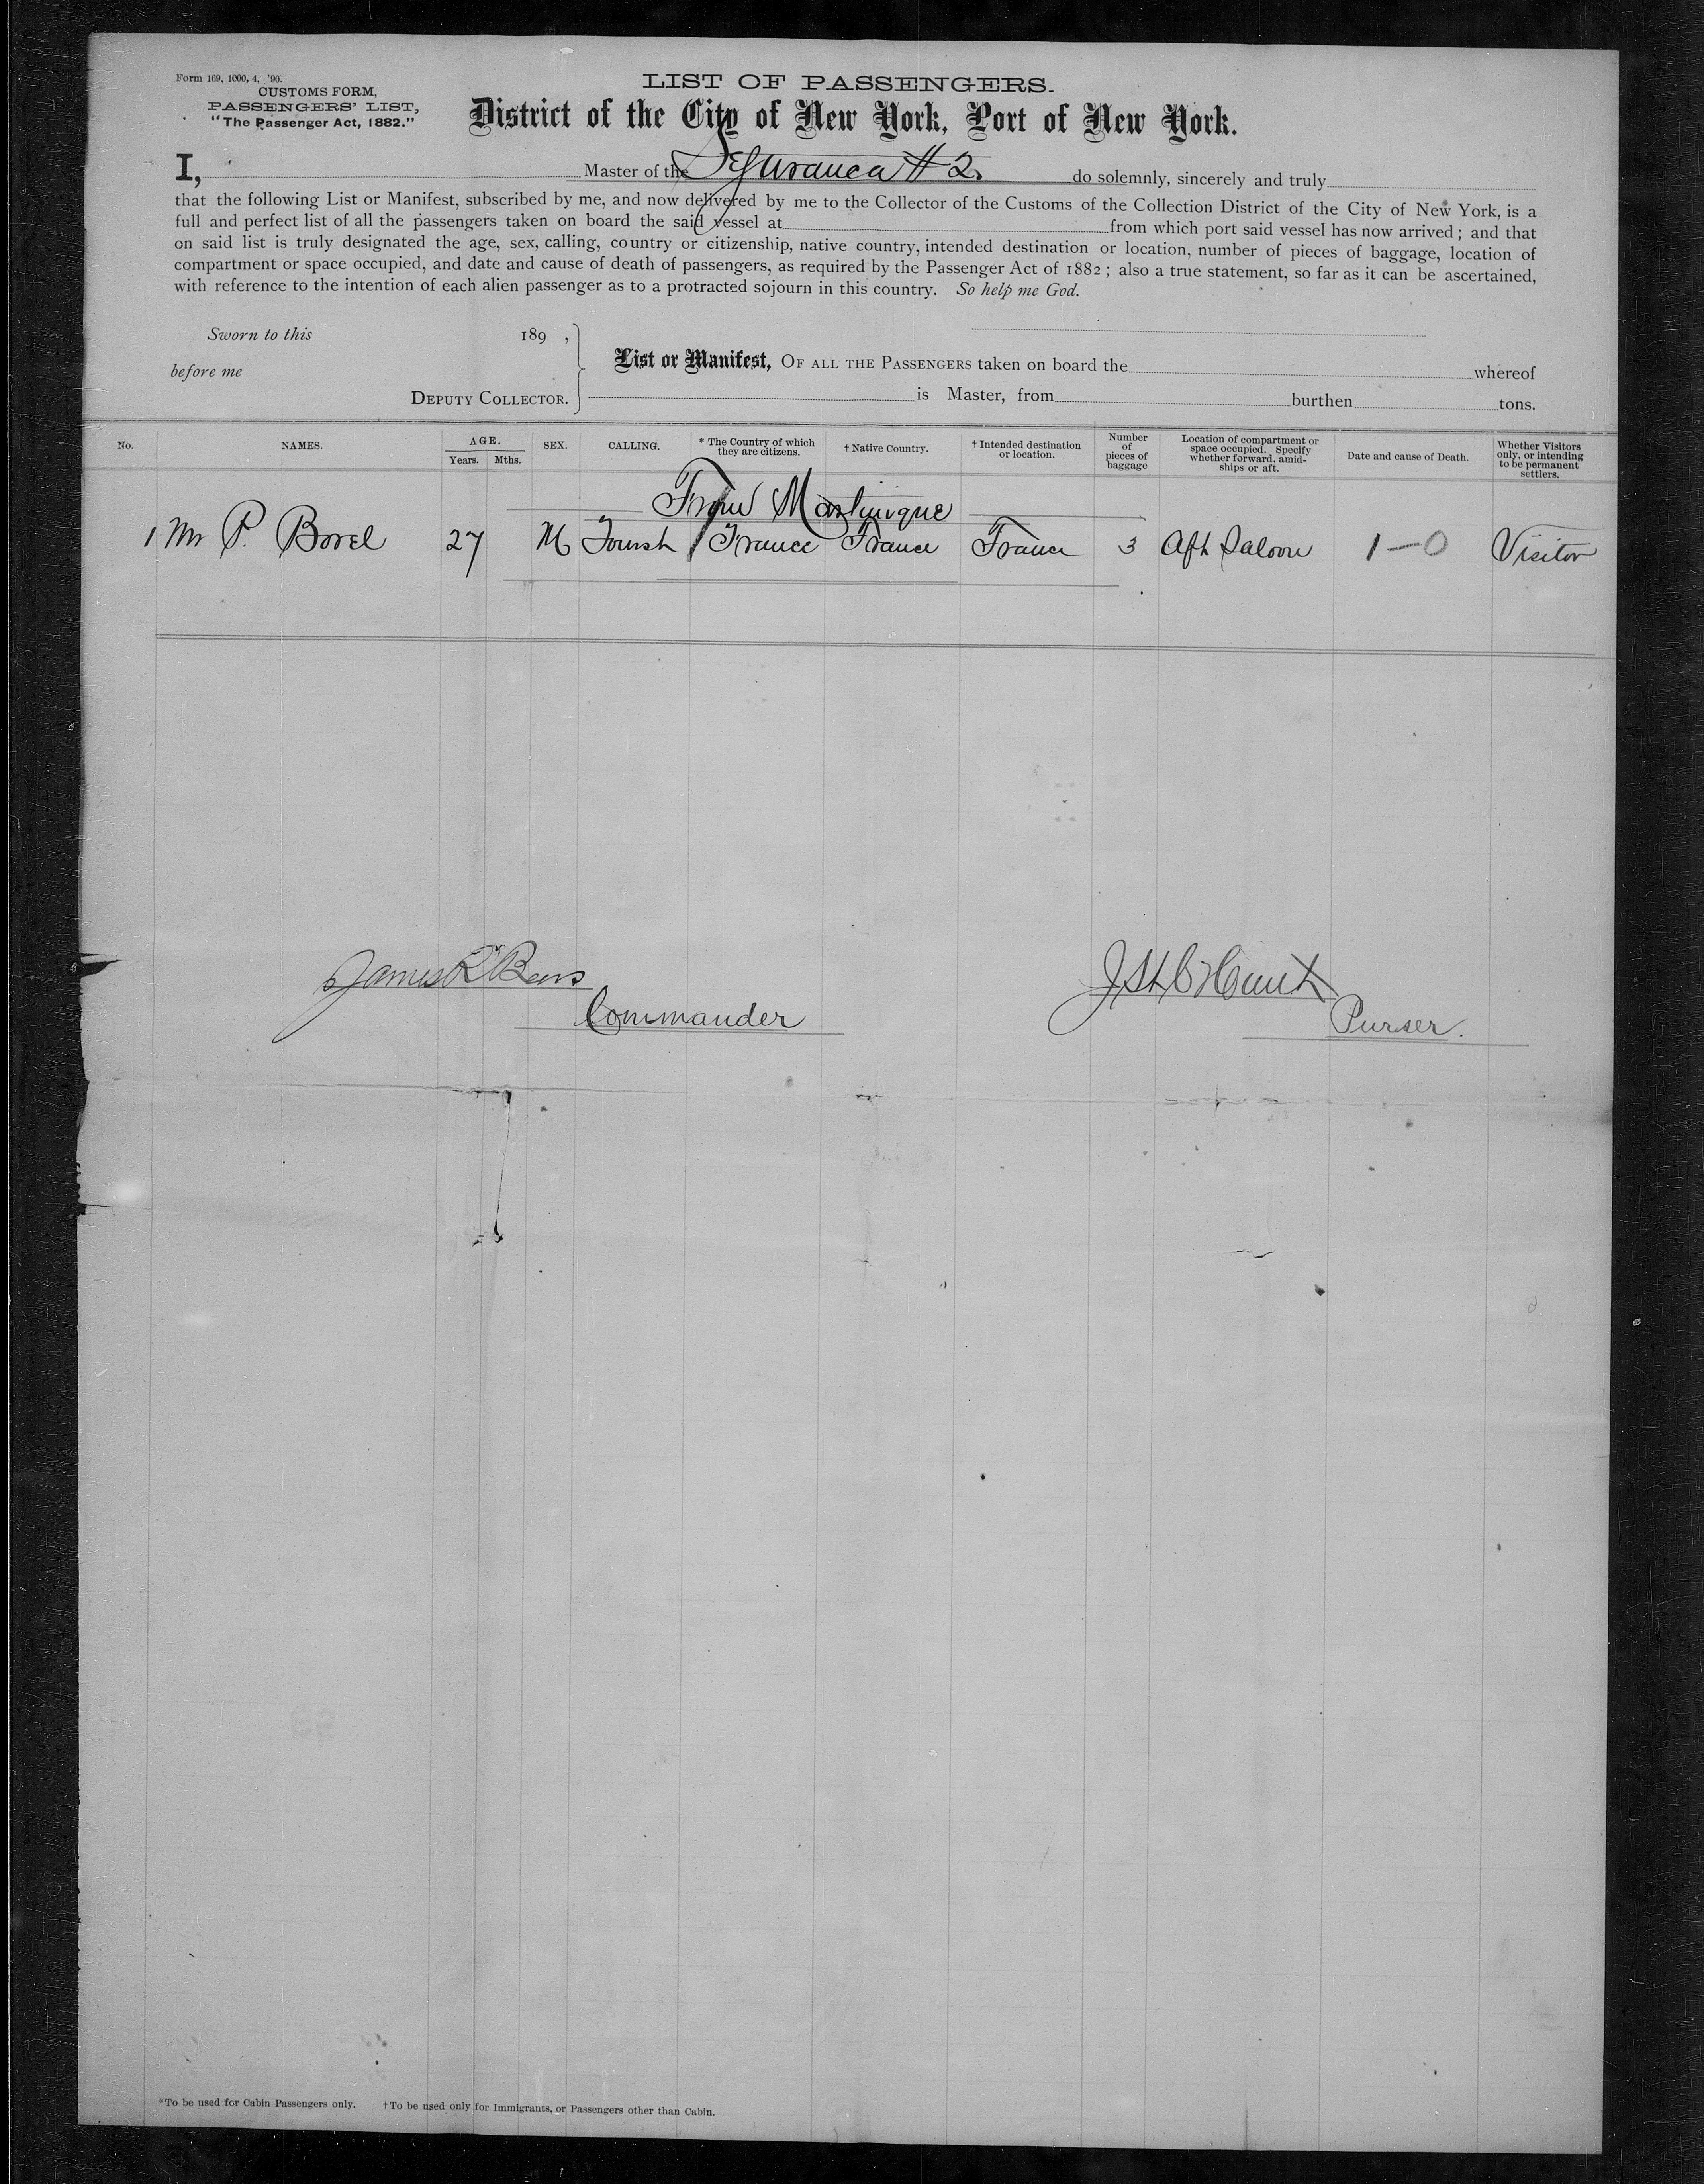 Form 169, 1000, 4, '90.
CUSTOMS FORM,
PASSENGERS' LIST,
"The Passenger Act, 1882."
LIST OF PASSENGERS.
District of the City of New York, Port of New York.
I, Master of the Seguranca # 2. do solemnly, sincerely and truly
that the following List or Manifest, subscribed by me, and now delivered by me to the Collector of the Customs of the Collection District of the City of New York, is a
full and perfect list of all the passengers taken on board the said vessel at from which port said vessel has now arrived; and that
on said list is truly designated the age, sex, calling, country or citizenship, native country, intended destination or location, number of pieces of baggage, location of
compartment or space occupied, and date and cause of death of passengers, as required by the Passenger Act of 1882; also a true statement, so far as it can be ascertained,
with reference to the intention of each alien passenger as to a protracted sojourn in this country. So help me God.
Sworn to this 189 ,
before me
DEPUTY COLLECTOR.
List or Manifest, OF ALL THE PASSENGERS taken on board the whereof
is Master, from burthen tons.
No. NAMES. AGE. Years. Mths. SEX. CALLING. * The Country of which they are citizens. † Native Country. † Intended destination or location. Number of pieces of baggage Location of compartment or space occupied. Specify whether forward, amidships or aft. Date and cause of Death. Whether Visitors only, or intending to be permanent settlers.
From Martinique
1 Mr P. Borel 27 M Tourist France France France 3 Aft Saloon 1—0 Visitor
James R Beers
Commander
Hunt
Purser.
*To be used for Cabin Passengers only. †To be used only for Immigrants, or Passengers other than Cabin.